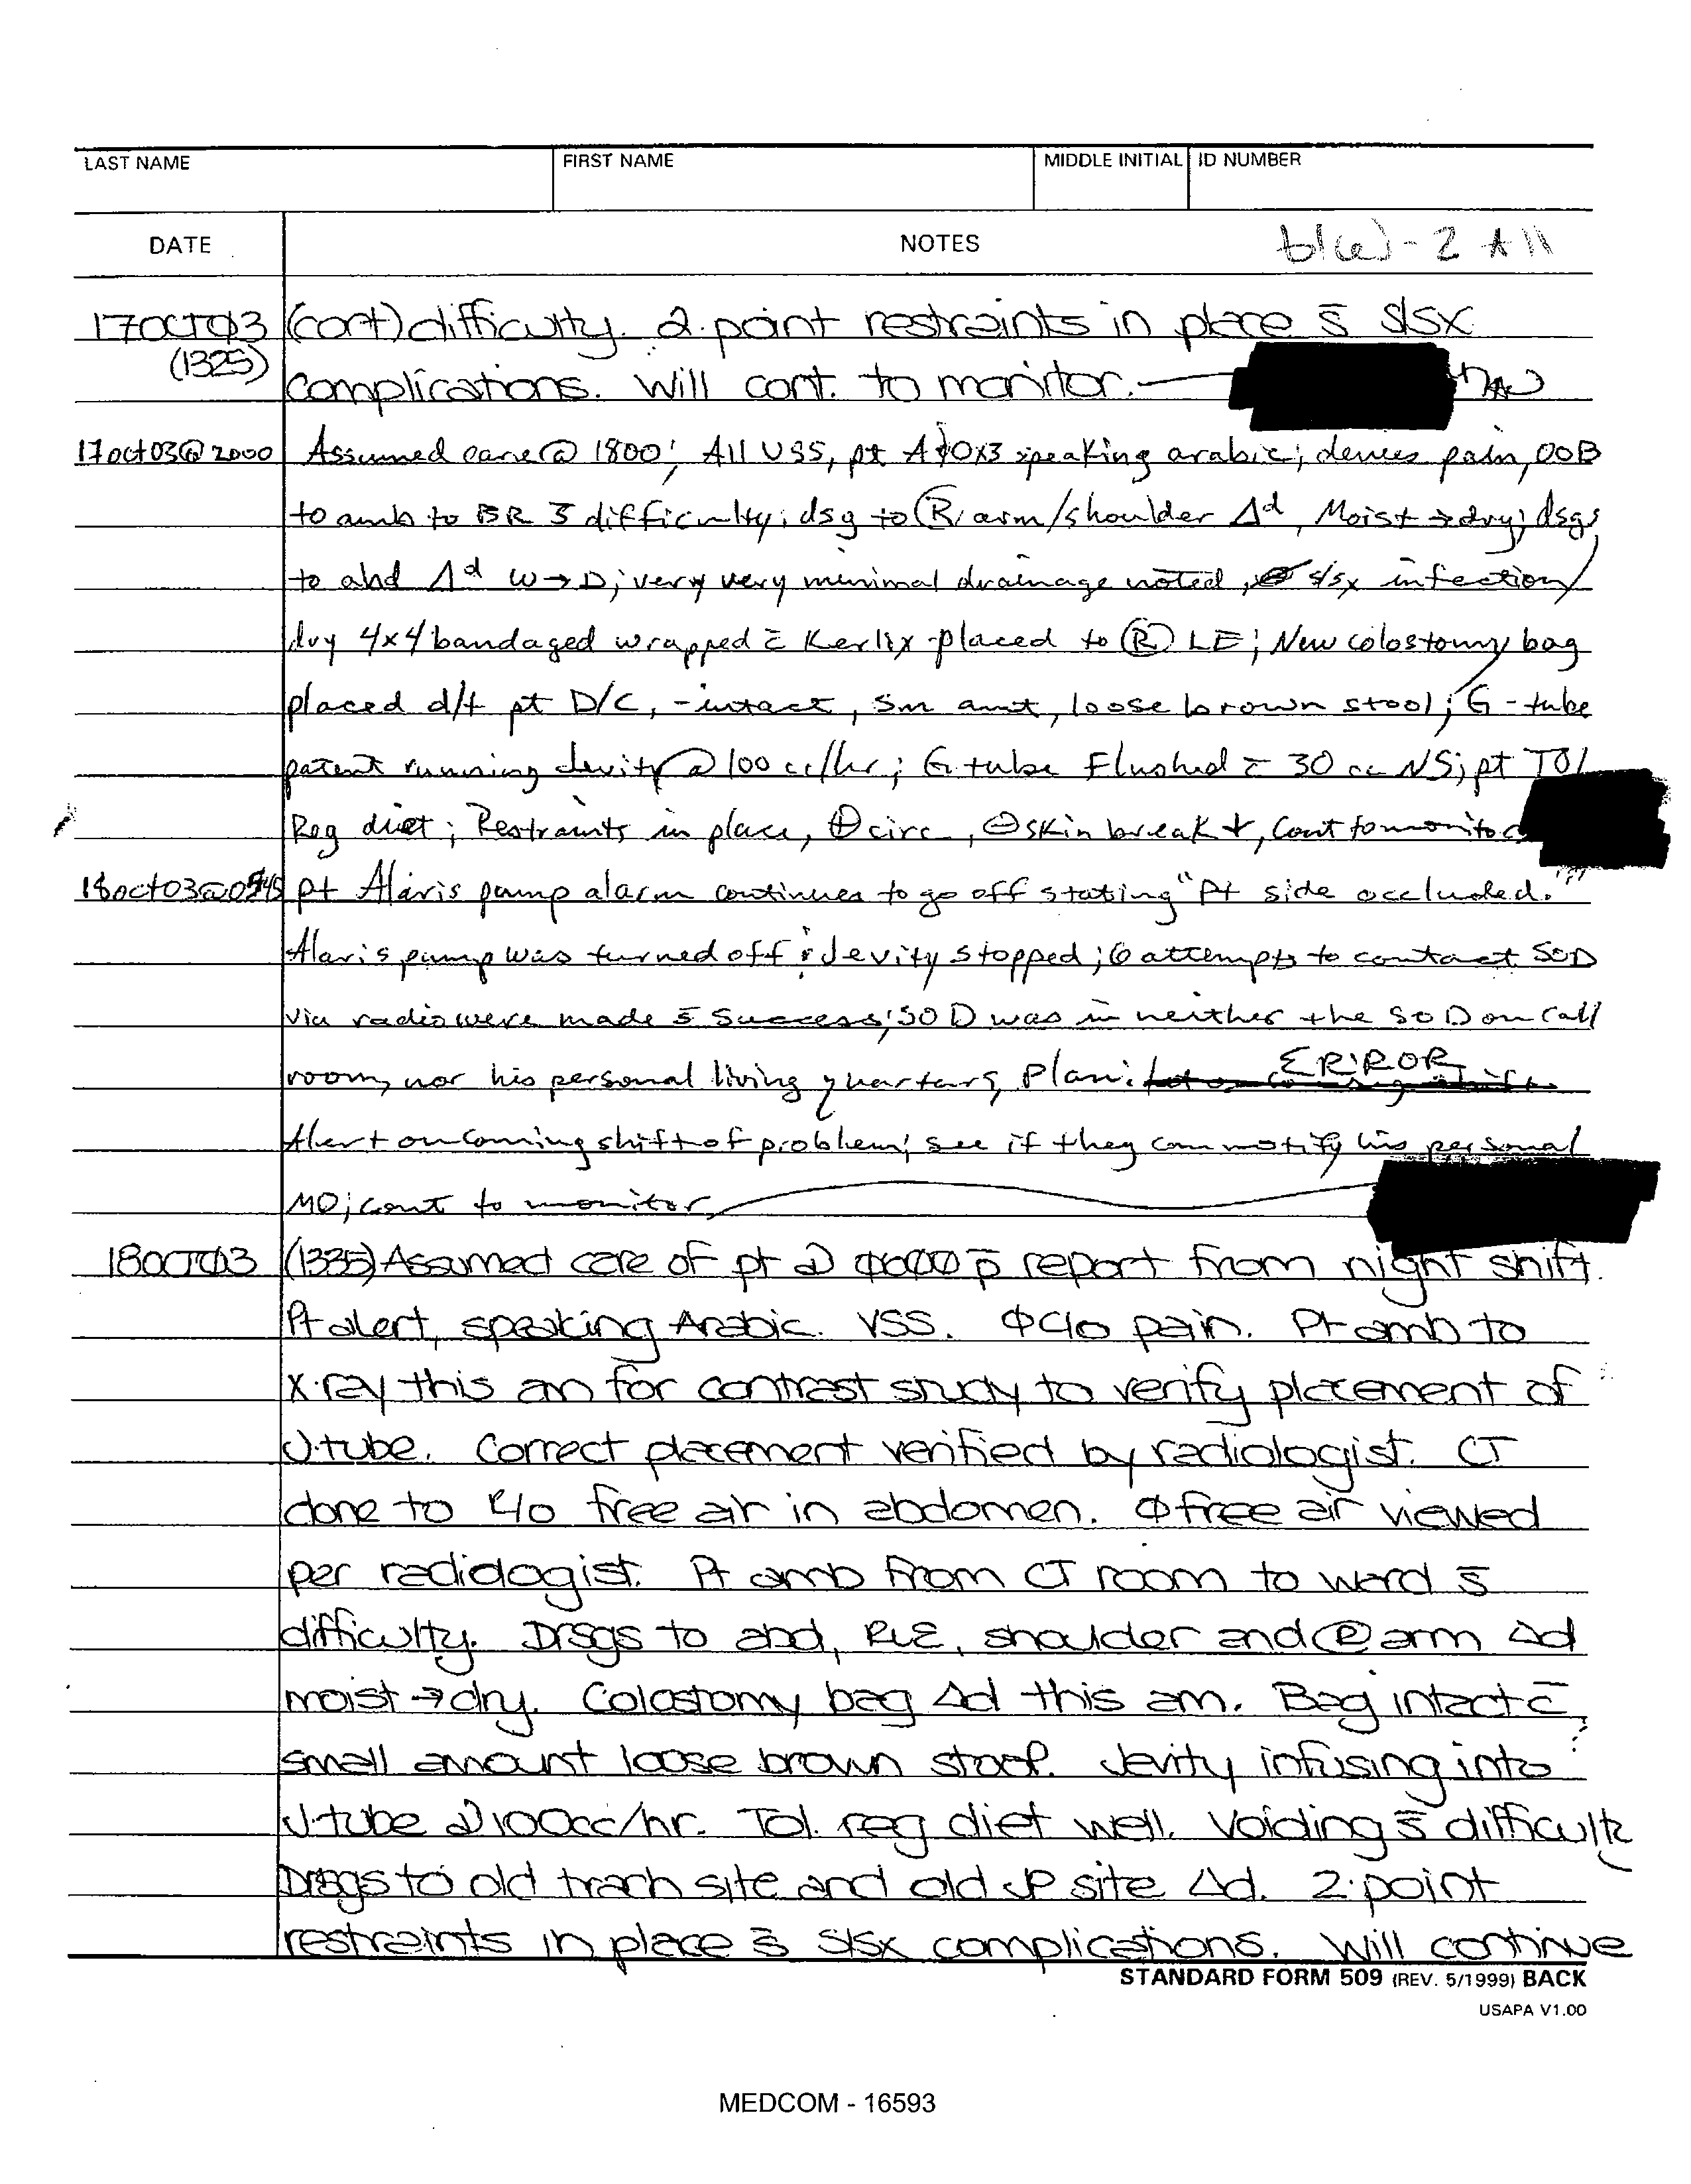 LAST NAME FIRST NAME MIDDLE INITIAL ID NUMBER
DATE NOTES b(6)-2 All
17OCT03 (cont) difficulty. 2-point restraints in place s̄ s/sx
(1325) complications. Will cont. to monitor.
17oct03@2000 Assumed care @ 1800; All VSS, pt A+Ox3 speaking arabic; denies pain, OOB
to amb to BR s̄ difficulty; dsg to Ⓡ arm/shoulder Δd, Moist → dry; dsgs
to abd Δd W→D; very very minimal drainage noted, s/sx infection
dry 4x4 bandaged wrapped c̄ Kerlix placed to Ⓡ LE; New colostomy bag
placed d/t pt D/C, -intact, sm amt, loose brown stool; G-tube
patent running Jevity @ 100 cc/hr; G-tube Flushed c̄ 30 cc NS; pt Tol
Reg diet; Restraints in place, ⊕ circ, ⊖ skin break ↓, Cont to monitor
18oct03@0545 pt Alaris pump alarm continues to go off stating "Pt side occluded."
Alaris pump was turned off & Jevity stopped; 6 attempts to contact SOD
via radio were made s̄ success; SOD was in neither the SOD on call
room, nor his personal living quarters, Plan: ERROR
Alert oncoming shift of problem; see if they can notify his personal
MD; cont to monitor
18OCT03 (1335) Assumed care of pt @ 0600 p̄ report from night shift.
Pt alert, speaking Arabic. VSS. Φ c/o pain. Pt amb to
x-ray this am for contrast study to verify placement of
J-tube. Correct placement verified by radiologist. CT
done to r/o free air in abdomen. Φ free air viewed
per radiologist. Pt amb from CT room to ward s̄
difficulty. Drsgs to abd, RLE, shoulder and Ⓡ arm Δd
moist → dry. Colostomy bag Δd this am. Bag intact c̄
small amount loose brown stool. Jevity infusing into
J-tube @ 100cc/hr. Tol. reg diet well. Voiding s̄ difficulty
Drsgs to old trach site and old JP site Δd. 2-point
restraints in place s̄ s/sx complications. Will continue
STANDARD FORM 509 (REV. 5/1999) BACK
USAPA V1.00
MEDCOM - 16593